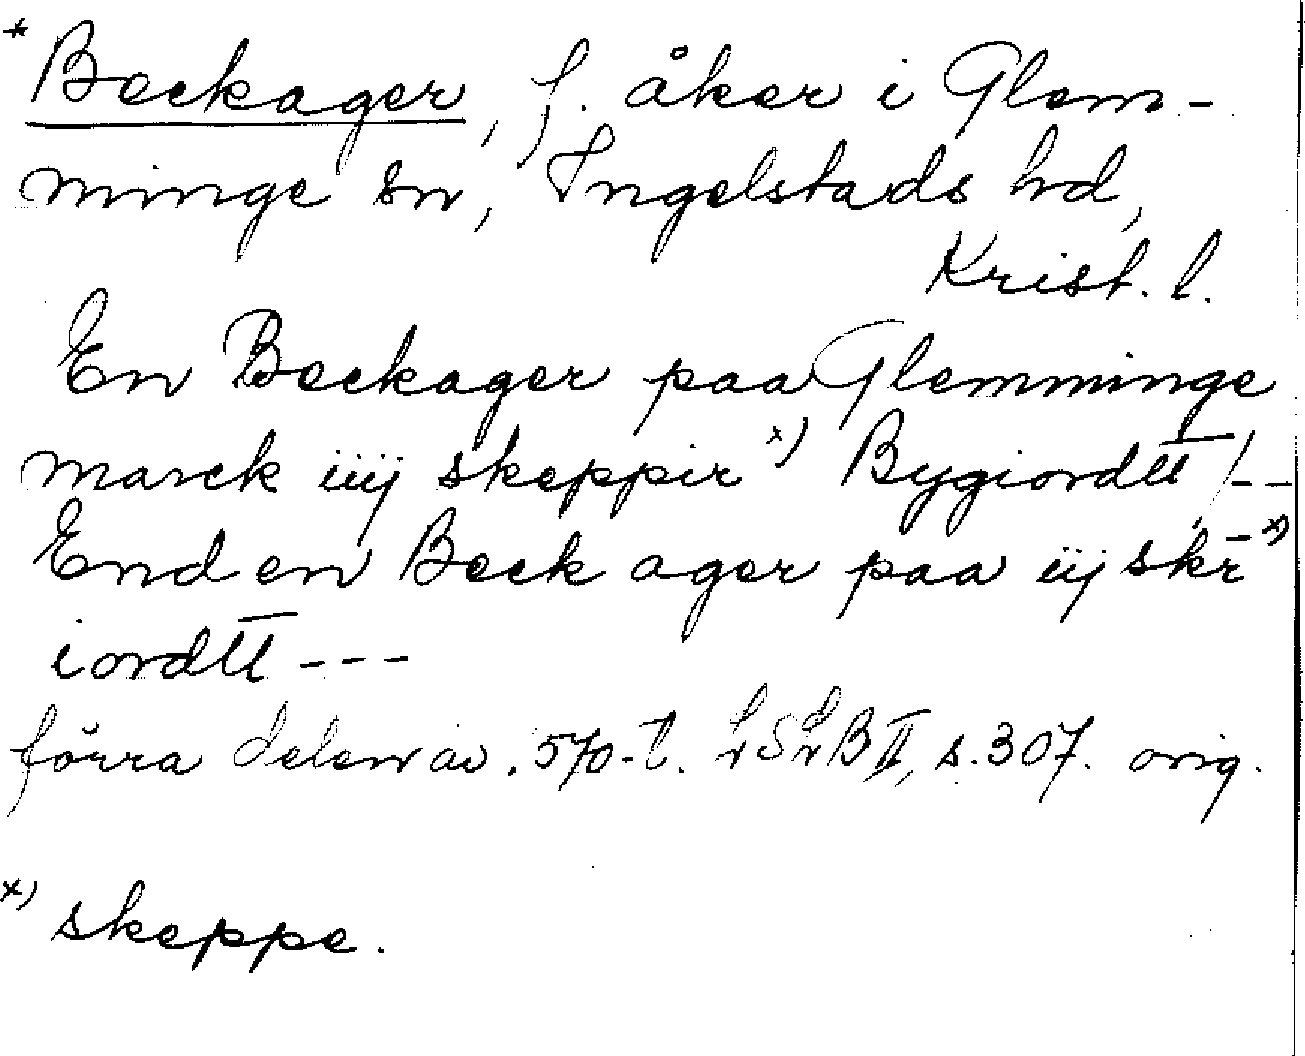 *Beckager, f. åker i Glem-
minge sn, Ingelstads hd,
Krist. l.
En Beckager paa Glemminge
marck iiij skeppir x) Bygiordtt / --
End en Beck ager paa iij skr x)
iordtt ---
förra delen av 1570-t. LSLB II, s. 307. orig.
x) skeppe.